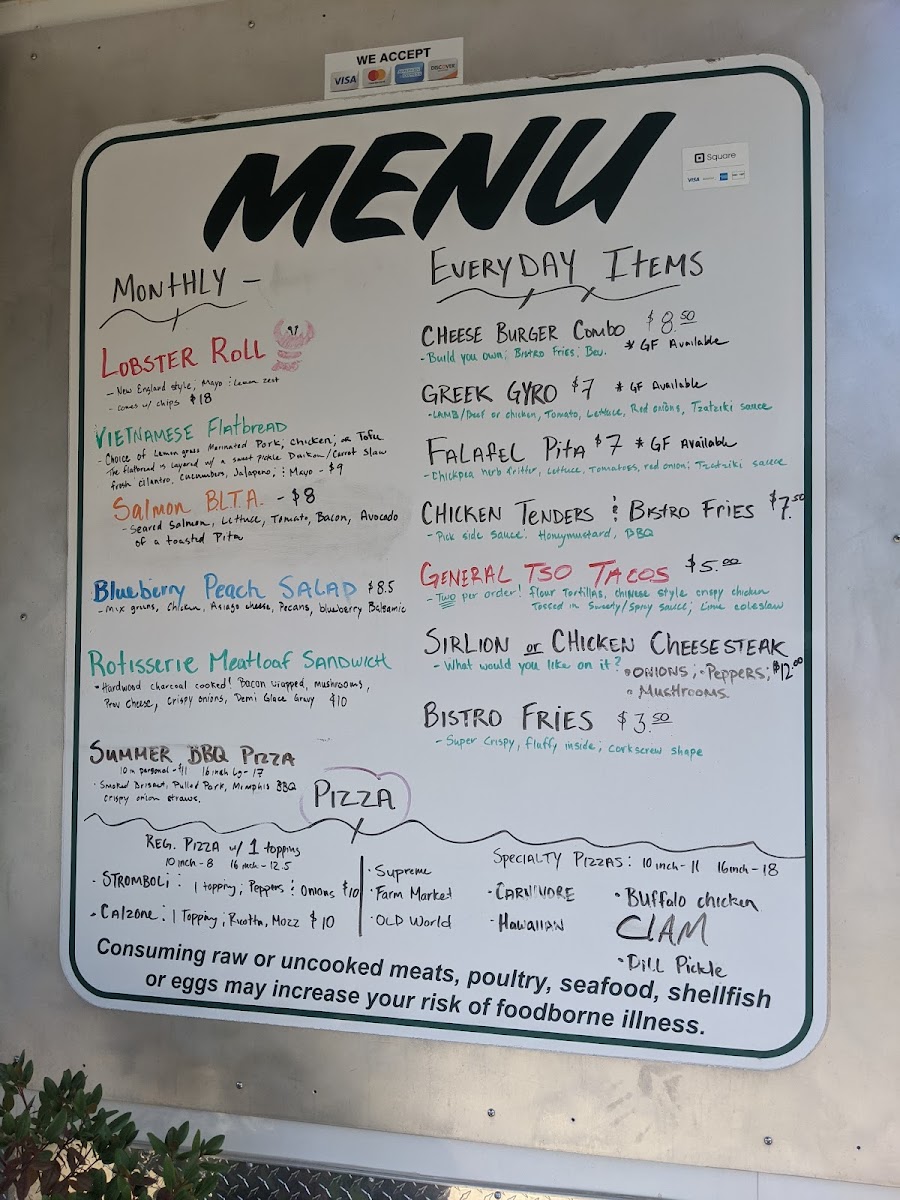 WE ACCEPT
VISA MasterCard DISCOVER
MENU
Square
VISA
MONTHLY -
LOBSTER ROLL
- New England style; Mayo; Lemon zest
- comes w/ chips $18
VIETNAMESE Flatbread
- Choice of Lemon grass Marinated Pork, Chicken, or Tofu
The flatbread is layered w/ a sweet pickle Daikon/Carrot Slaw
fresh cilantro, Cucumbers, Jalapeno, & Mayo - $9
Salmon BLTA. - $8
- Seared Salmon, Lettuce, Tomato, Bacon, Avocado
of a toasted Pita
Blueberry Peach SALAD $8.5
- Mix greens, Chicken, Asiago cheese, Pecans, blueberry Balsamic
Rotisserie Meatloaf SANDWICH
• Hardwood charcoal cooked! Bacon wrapped, Mushrooms,
Prov Cheese, Crispy onions, Demi Glace Gravy $10
SUMMER BBQ PIZZA
10 in personal - $11 16 inch Lg - 17
• Smoked Brisket, Pulled Pork, Memphis BBQ
Crispy onion straws.
EVERYDAY ITEMS
CHEESE BURGER Combo $8.50
- Build you own; Bistro Fries; Bev. * GF Available
GREEK GYRO $7 * GF Available
- LAMB/Beef or chicken, Tomato, Lettuce, Red onions, Tzatziki sauce
FALAFEL PITA $7 * GF Available
- Chickpea herb fritter, Lettuce, Tomatoes, red onion; Tzatziki sauce
CHICKEN TENDERS & BISTRO FRIES $7.50
- Pick side sauce: Honeymustard, BBQ
GENERAL TSO TACOS $5.00
- TWO per order! flour Tortillas, CHINESE style crispy chicken
Tossed in Sweety/Spicy sauce; Lime coleslaw
SIRLION or CHICKEN CHEESESTEAK
- What would you like on it? • ONIONS; • Peppers; $12.00
• MUSHROOMS
BISTRO FRIES $3.50
- Super Crispy, fluffy inside; corkscrew shape
PIZZA
REG. PIZZA w/ 1 topping
10 inch - 8 16 inch - 12.5
• STROMBOLI: 1 topping; Peppers & Onions $10
• Calzone: 1 Topping, Ricotta, Mozz $10
SPECIALTY PIZZAS: 10 inch - 11 16 inch - 18
• Supreme
• Farm Market
• OLD World
• CARNIVORE
• HAWAIIAN
• Buffalo chicken
CLAM
• Dill Pickle
Consuming raw or uncooked meats, poultry, seafood, shellfish
or eggs may increase your risk of foodborne illness.